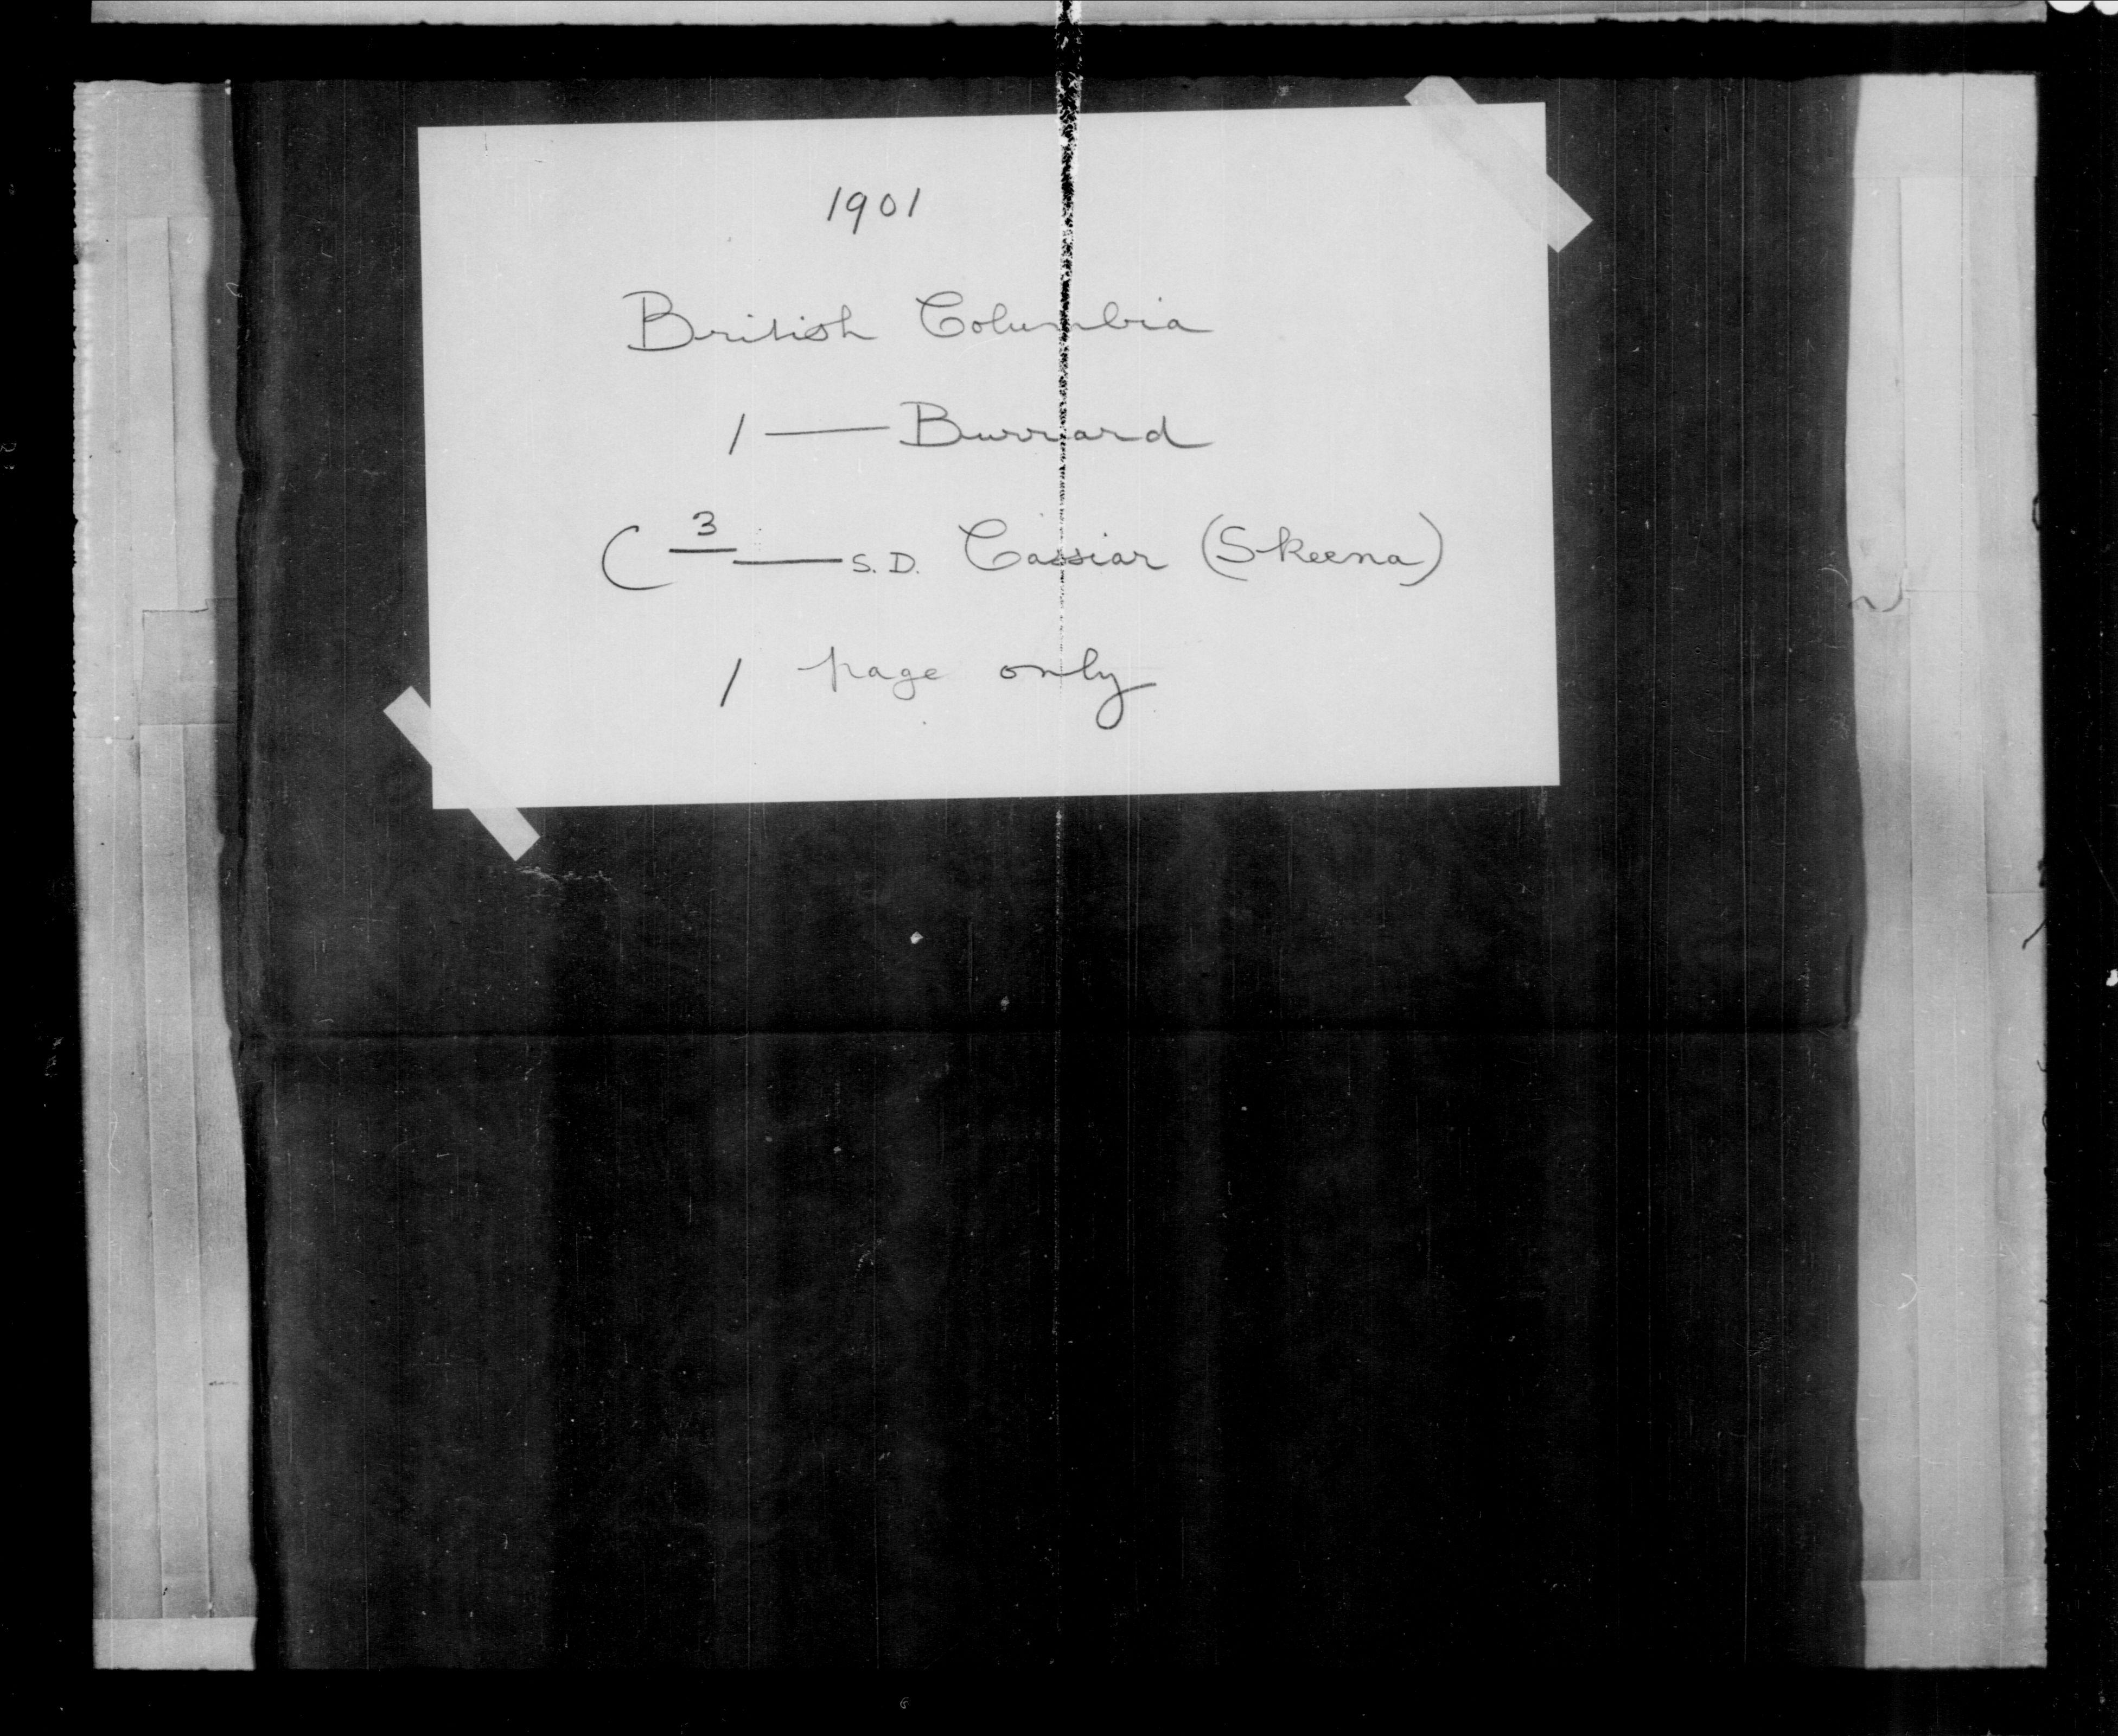 1901
British Columbia
1 — Burrard
( 3 — S. D. Cassiar (Skeena)
1 page only